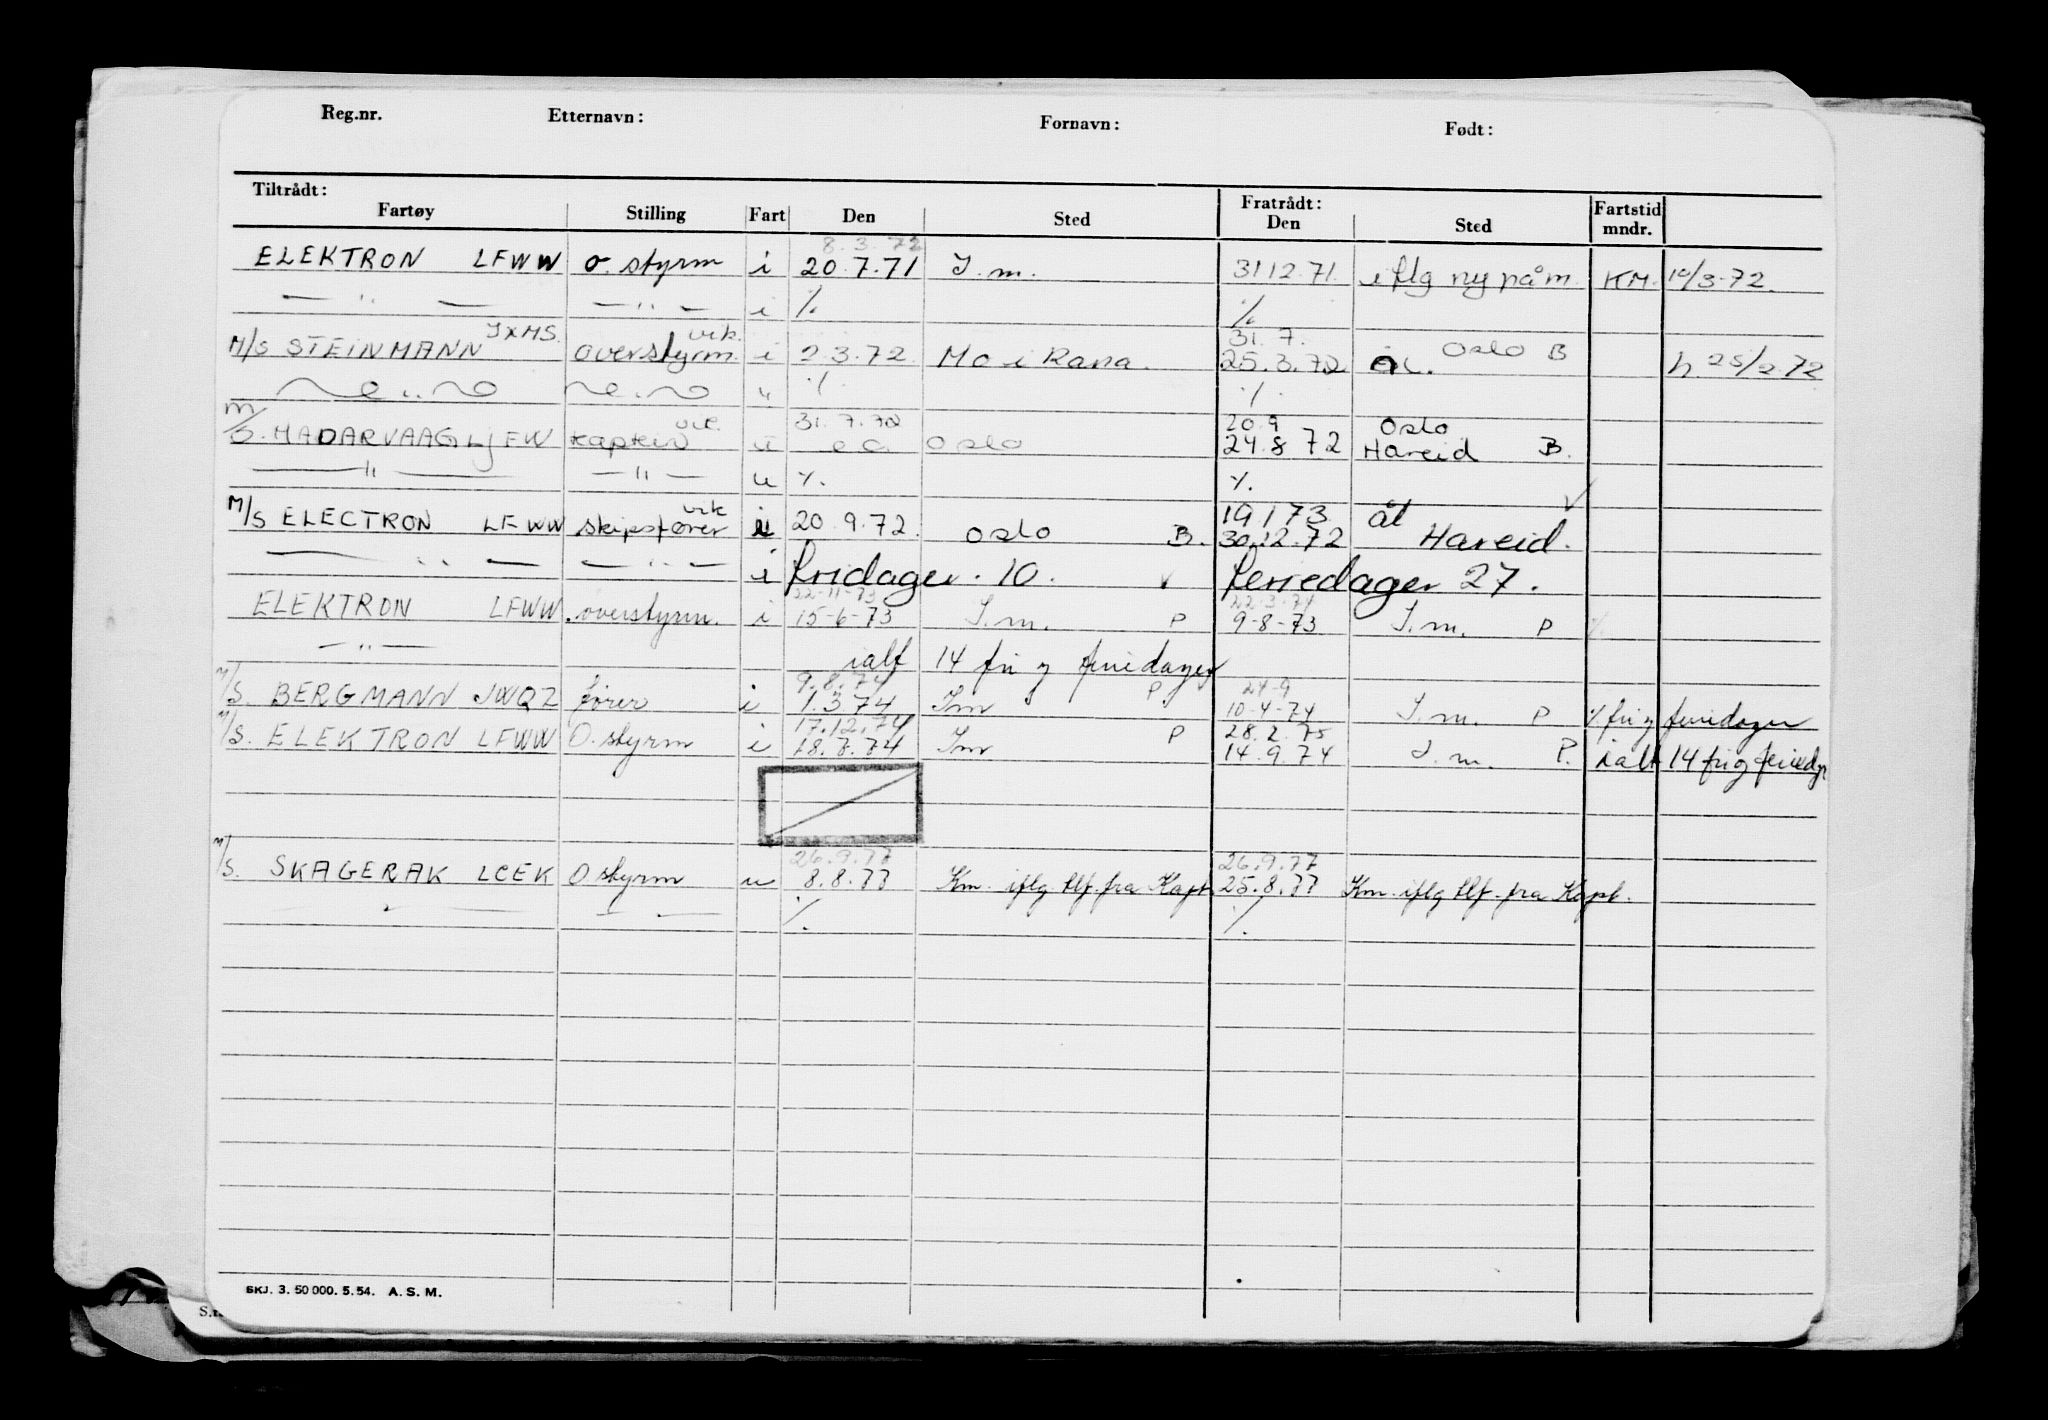 Reg.nr. Etternavn: Fornavn: Født:
Tiltrådt: Fratrådt:
Fartøy Stilling Fart Den Sted Den Sted Fartstid mndr.
8.3.72
ELEKTRON LFWW o. styrm i 20.7.71 I.m. 31 12.71. iflg ny påm. KM. 10/3-72.
— " — — " — i ·/. ·/.
JXMS. vik. 31.7.
M/S STEINMANN overstyrm. i 2.3.72 Mo i Rana. 25.3.72 Oslo B h 25/2 72
" " " ·/. ·/.
31.7.72 20.9 Oslo
M/S. HADARVAAG LJFW kaptein u Oslo 24.8 72 Hareid B.
— " — — " — u ·/. ·/.
vik 19 1 73 åt
M/S ELECTRON LFWW skipsfører 20.9.72. Oslo B. 30.12.72 Hareid.
— " — — " — i fridager. 10. feriedager 27.
22-11-73 22.3.74
ELEKTRON LFWW. overstyrm. i 15-6-73 I.m. P 9-8-73 I.m. P
— " — ialt 14 fri og feriedager
9.8.74 24-9
M/S. BERGMANN JWQZ fører i 1.3.74 Im P. 10-4-74 I.m. P ·/. fri og feriedager
17.12.74 28.2.75
M/S. ELEKTRON LFWW O. styrm i 18.7.74 Im P 14.9.74 I.m. P. ialt 14 fri og feriedgr
26.9.77 26.9.77
M/S. SKAGERAK LCEK O styrm u 8.8.77 Km. iflg tlf. fra Kapt. 25.8.77 Km. iflg tlf. fra Kapt.
— " — — — ·/. ·/.
SKJ. 3. 50 000. 5. 54. A. S. M.